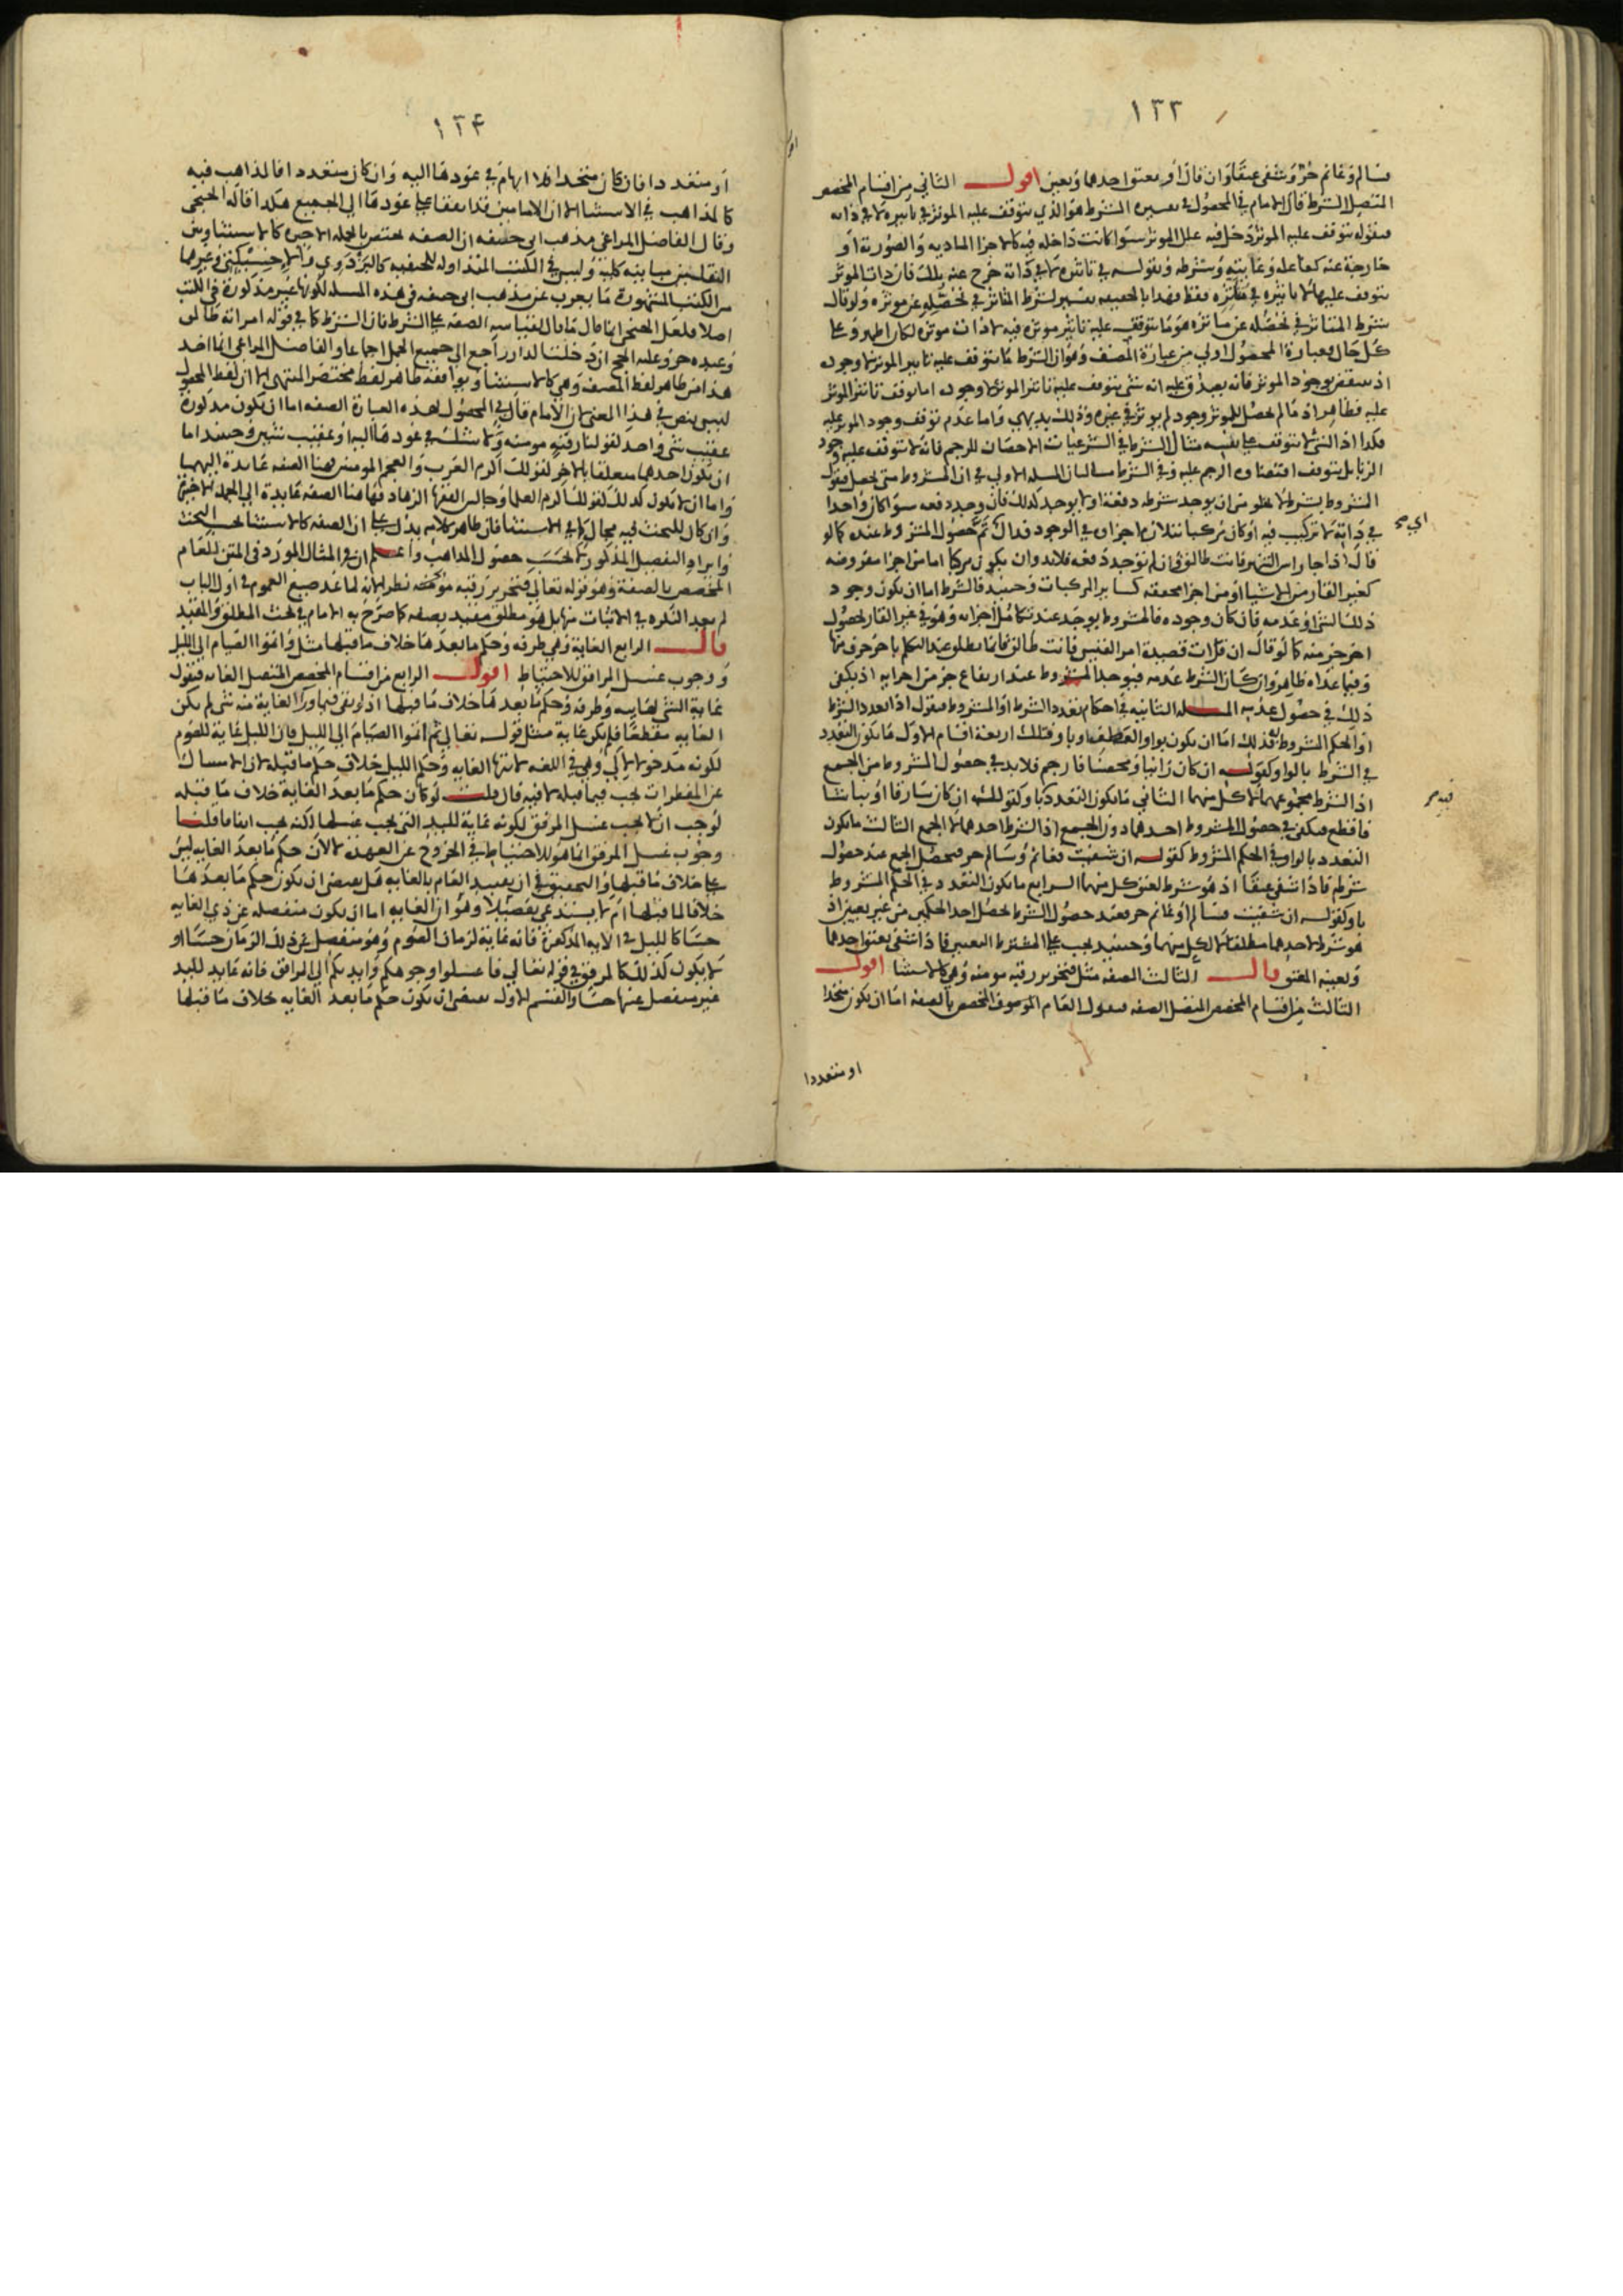 ١٣٣
فسالم وغانم حر وشفى عتقا وان قال او معتق احدهما ويعين اقول الثاني من اقسام المخصص
المتصل الشرط قال الامام في المحصول في تفسيره الشرط هو الذي يتوقف عليه الموثر في تاثيره لا في ذاته
فقوله يتوقف عليه الموثر دخل فيه علل الموثر سوا كانت داخله فيه كالاجزا الماديه والصورية او
خارجية عنه كفاعله وغايته وشرطه وبقوله في تاثيره لا في ذاته خرج عنه تلك فان ذات الموثر
يتوقف عليها لا تاثيره في فقط فهذا بالحقيقه تفسير لشرط المتاثر في تحصله عن موثره ولو قال
شرط المتاثر في تحصله عن ما تره هو ما يتوقف عليه تاثير موثره فيه لا ذات موثره لكان اظهر وعلى
كل حال فعبارة المحصول اولى من عبارة المصنف وهو ان الشرط ما يتوقف عليه تاثير الموثر لا وجوده
اذ ينتقض بوجود الموثر فانه يصدق عليه انه شي يتوقف عليه تاثير الموثر لا وجوده اما توقف تاثير الموثر
عليه فظاهر اذ ما لم يحصل للموثر وجود لم يوثر في غيره وذلك بديهي واما عدم توقف وجود الموثر عليه
فكذا اذ الشي لا يتوقف على نفسه مثال الشرط في الشرعيات الاحصان للرجم فانه لا يتوقف عليه وجود
الزنا بل يتوقف اقتضاوه الرجم عليه وفي الشرط مسالتان المسله الاولى في ان المشروط متى يحصل فنقول
المشروط بشرط لا يخلو من ان يوجد شرطه دفعة او لا يوجد كذلك فان وجد دفعه سوا كان واحدا
في ذاته لا تركيب فيه او كان مركبا تتلازم اجزاوه في الوجود فذاك تم حصول المشروط عنده كما لو
قال اذا جا راس الشهر فانت طالق وان لم توجد دفعه فلا بد وان يكون مركبا اما من اجزا مفروضه
كغير القار من الاشيا او من اجزا محققه كساير المركبات وحينيذ فالشرط اما ان يكون وجود
ذلك الشي او عدمه فان كان وجوده فالمشروط يوجد عند تكامل اجزايه وهو في غير القار لحصول
اخر جز منه كما لو قال ان قرات قصيدة امر القيس فانت طالق فانها تطلق عند التكلم باخر حرف منها
وفيما عداه ظاهر وان كان الشرط عدمه فيوجد المشروط عند ارتفاع جز من اجزايه اذ يكفي
ذلك في حصول عدمه المسله الثانيه في احكام تعدد الشرط او المشروط فنقول اذا تعدد الشرط
او الحكم المشروط به فذلك اما ان يكون بواو العطف او باو فتلك اربعة اقسام الاول ما يكون التعدد
في الشرط بالواو كقوله ان كان زانيا ومحصنا فارجم فلا بد في حصول المشروط من الجمع
اذ الشرط مجموعهما لا كل منهما الثاني ما يكون التعدد باو كقولك ان كان سارقا او نباشا
فاقطع فيكفي في حصول المشروط احدهما دون الجميع اذ الشرط احدهما لا الجمع الثالث ما يكون
التعدد بالواو في الحكم المشروط كقوله ان شفيت فغانم وسالم حر فيحصل الجمع عند حصول
شرطهم فاذا شفي عتقا اذ هو شرط لعتق كل منهما الرابع ما يكون التعدد في الحكم المشروط
باو كقوله ان شفيت فسالم او غانم حر فعند حصول الشرط يحصل احد الحكمين من غير تعيين اذ
هو شرط لاحدهما مطلقا لا لكل منهما وحينيذ يجب على المشترط التعيين فاذا شفي يعتق احدهما
ولعينه المعتق قال الثالث الصفه مثل فتحرير رقبه مومنه وهي كالاستثنا اقول
الثالث من اقسام المخصص المتصل الصفه فنقول العام الموصوف المخصص بالصفه اما ان يكون متحدا
او متعددا
١٣٤
او متعددا فان كان متحدا فلا ابهام في عودها اليه وان كان متعددا فالمذاهب فيه
كالمذاهب في الاستثنا الا ان الامامين قد اتفقا على عودها الى الجميع هكذا قاله الخنجي
وقال الفاضل المراغي مذهب ابي حنيفه ان الصفه تختص بالجمله الاخيره كالاستثنا وبين
النقلين مباينه كليه وليس في الكتب المتداوله للحنفيه كالبزدوي والاخسيكثي وغيرهما
من الكتب المشهورة ما يعرب عن مذهب ابي حنيفه في هذه المسله لكونها غير مذكورة في الكتب
اصلا فلعل الخنجي انما قال ما قال لقياسه الصفه على الشرط فان الشرط كما في قوله امراته طالق
وعبده حر وعليه الحج ان دخلت الدار راجع الى جميع الجمل اجماعا والفاضل المراغي انما اخذ
هذا من ظاهر لفظ المصنف وهي كالاستثنا ويوافقه ظاهر لفظ مختصر المنتهى الا ان لفظ المحصول
ليس بنص في هذا المعنى لان الامام قال في المحصول بهذه العبارة الصفه اما ان يكون مذكورة
عقيب شي واحد كقولنا رقبه مومنه ولا شك في عودها اليه او عقيب شيين وحينيذ اما
ان يكون احدهما متعلقا بالاخر كقولك اكرم العرب والعجم المومنين فهنا الصفه عايدة اليهما
واما ان لا يكون كذلك كقولك اكرم العلما وجالس الفقها الزهاد فهاهنا الصفه عايدة الى الجمله الاخيرة
وان كان للبحث فيه مجال كما في الاستثنا فان ظاهر كلامه يدل على ان الصفه كالاستثنا بحسب البحث
وايراد التفصيل المذكور لا بحسب حصول المذاهب واعلم ان في المثال المورد في المتن للعام
المخصص بالصفة وهو قوله تعالى فتحرير رقبه مومنه نظر لانه لما عد صيغ العموم في اول الباب
لم يعد النكره في الاثبات منها بل هو مطلق مقيد بصفه كما صرح به الامام في بحث المطلق والمقيد
قال الرابع الغاية وهي طرفه وحكم ما بعدها خلاف ما قبلها مثل واتموا الصيام الى الليل
ووجوب غسل المرافق للاحتياط اقول الرابع من اقسام المخصص المتصل الغايه فنقول
غاية الشي نهايته وطرفه وحكم ما بعدها خلاف ما قبلها اذ لو بقي فيما ورا الغاية منه شي لم يكن
الغايه مقطعا فلم يكن غاية مثل قوله تعالى ثم اتموا الصيام الى الليل فان الليل غاية للصوم
لكونه مدخولا لالى وهي في اللغه لانتها الغايه وحكم الليل خلاف حكم ما قبله لان الامساك
عن المفطرات يجب فيما قبله لا فيه فان قلت لو كان حكم ما بعد الغاية خلاف ما قبله
لوجب ان لا يجب غسل المرفق لكونه غاية لليد التي يجب غسلها لكنه يجب اتفاقا قلنا
وجوب غسل المرفق انما هو للاحتياط في الخروج عن العهدة لا لان حكم ما بعد الغايه ليس
على خلاف ما قبلها والتحقيق في ان تقييد العام بالغايه هل يقتضي ان يكون حكم ما بعدها
خلافا لما قبلها ام لا يستدعي تفصيلا وهو ان الغايه اما ان يكون منفصله عن ذي الغايه
حسا كالليل في الايه المذكورة فانه غاية لزمان الصوم وهو منفصل عن ذلك الزمان حسا او
لا يكون كذلك كالمرفق في قوله تعالى فاغسلوا وجوهكم وايديكم الى المرافق فانه غايه لليد
غير منفصل عنها حسا والقسم الاول يقتضي ان يكون حكم ما بعد الغايه خلاف ما قبلها